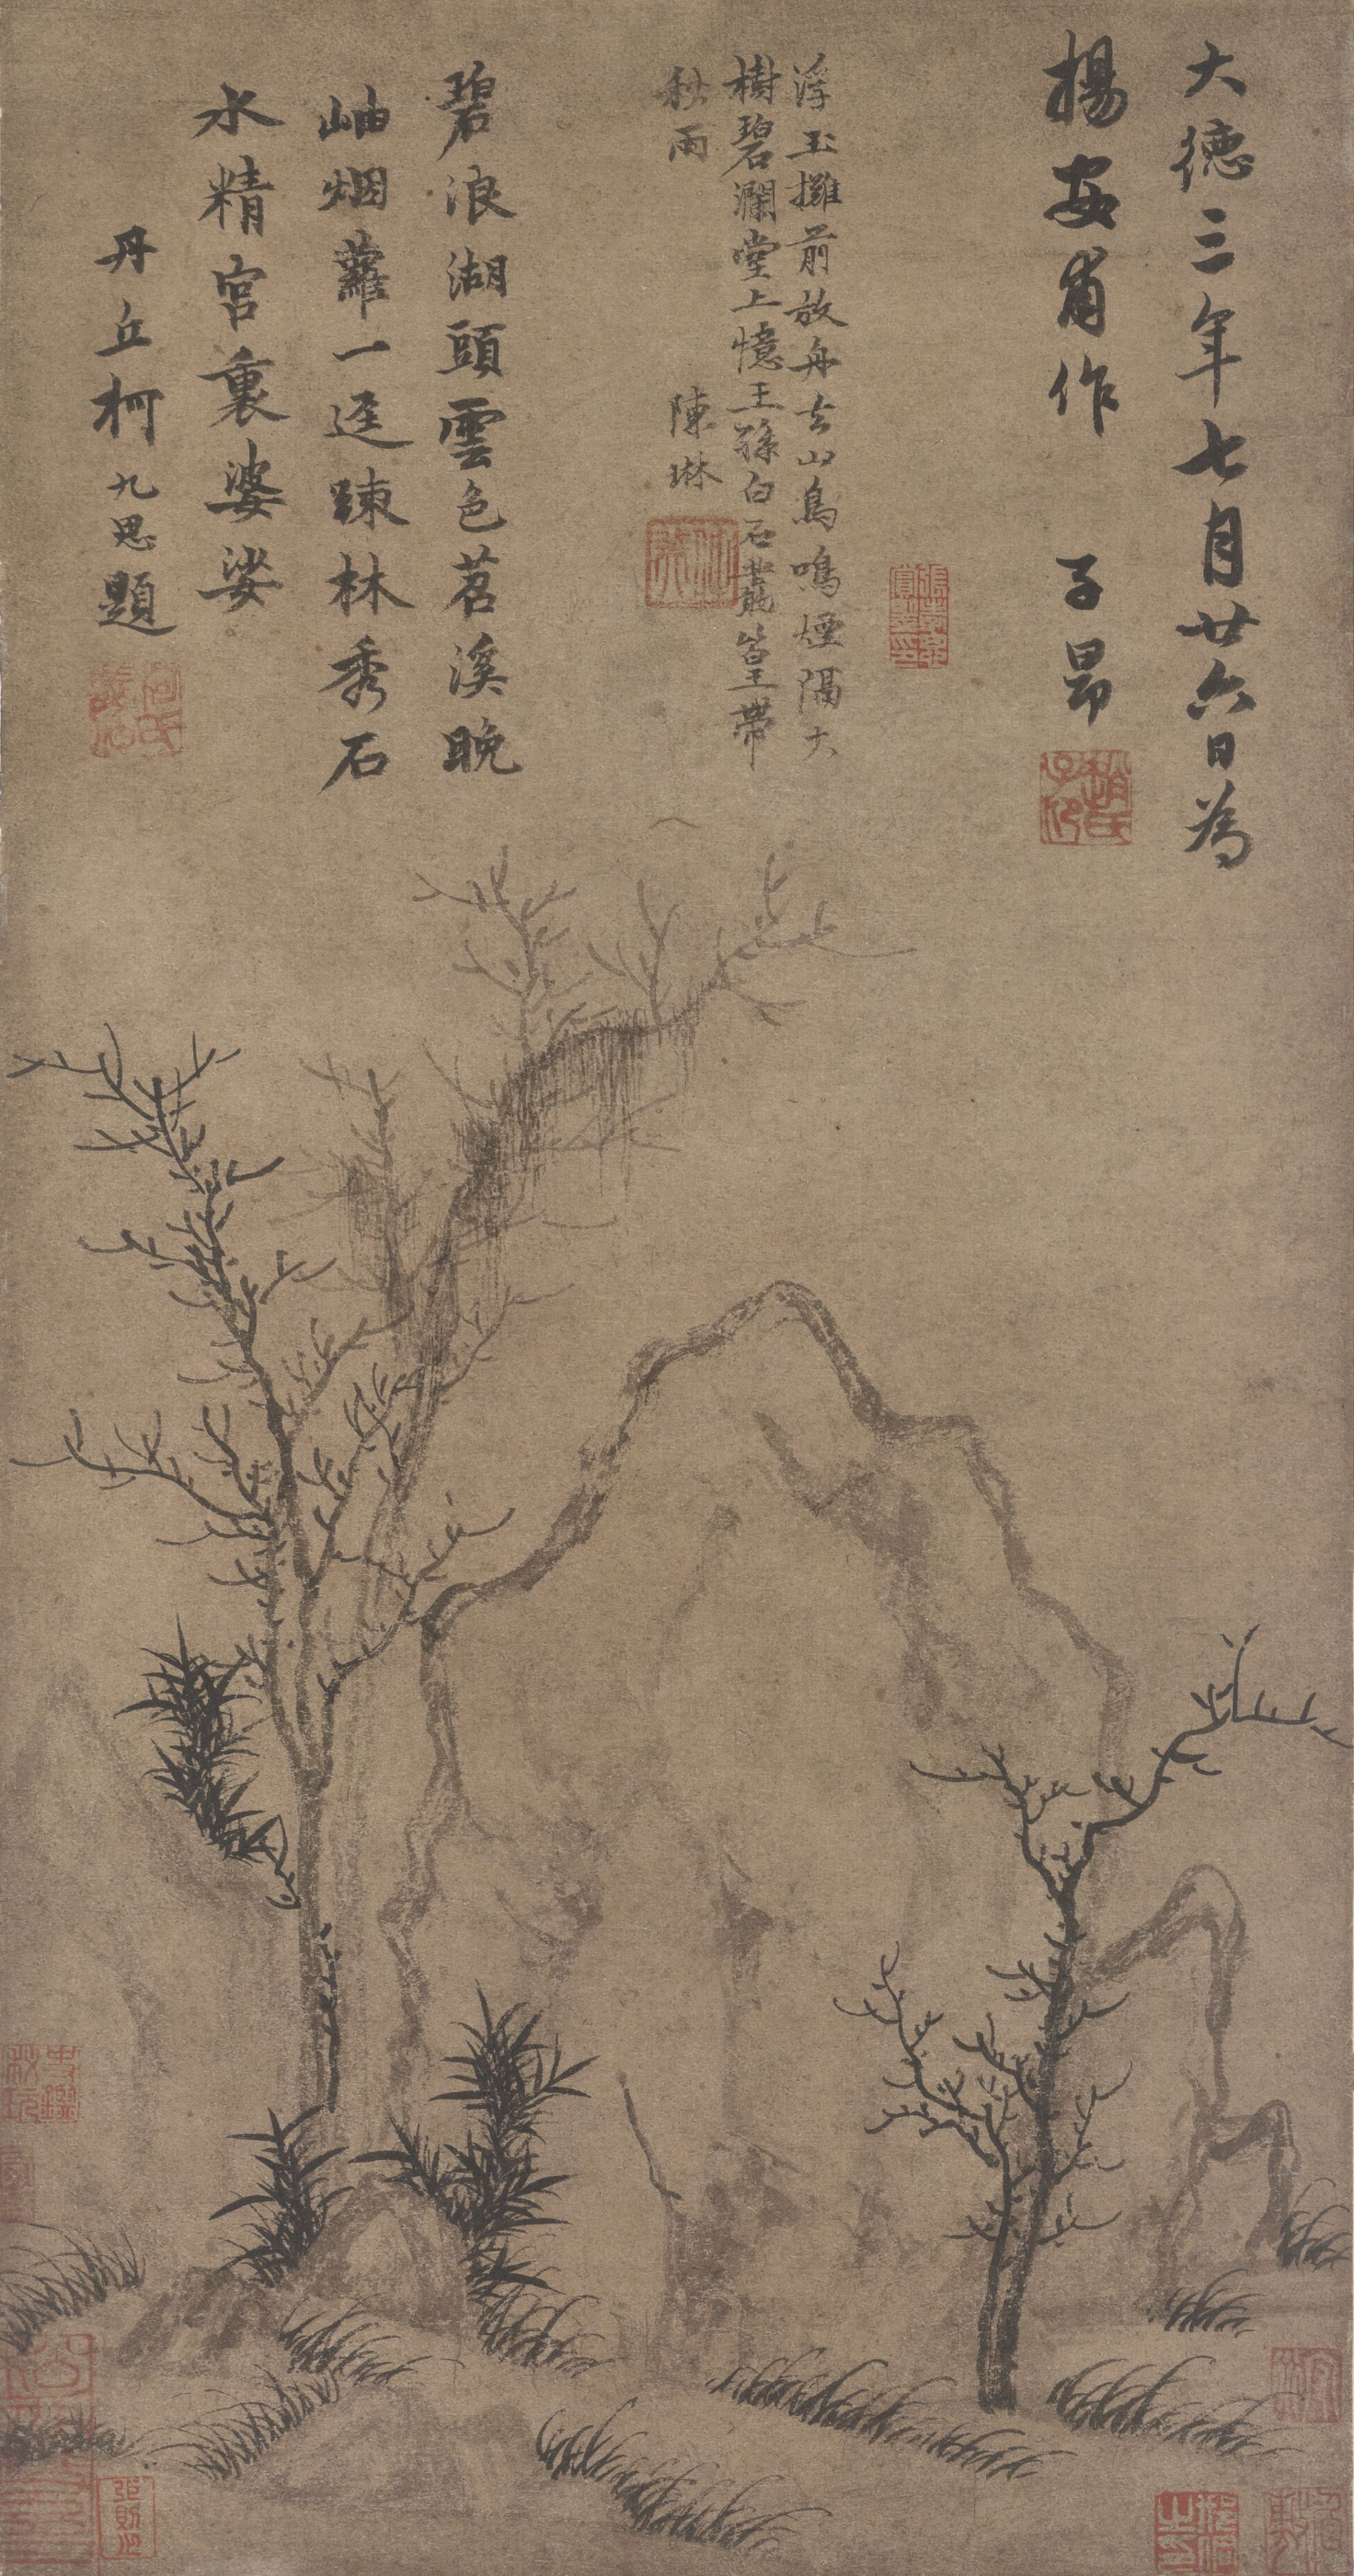 大德三年七月廿六日為
揚安甫作 子昂
趙氏子昂
浮玉攤前放舟去山鳥鳴煙隔大
樹碧瀾堂上憶王孫白石叢篁帶
秋雨 陳琳
碧浪湖頭雲色苕溪晚
岫烟蘿一逕踈林秀石
水精宮裏婆娑
丹丘柯九思題
柯氏敬仲
張則之